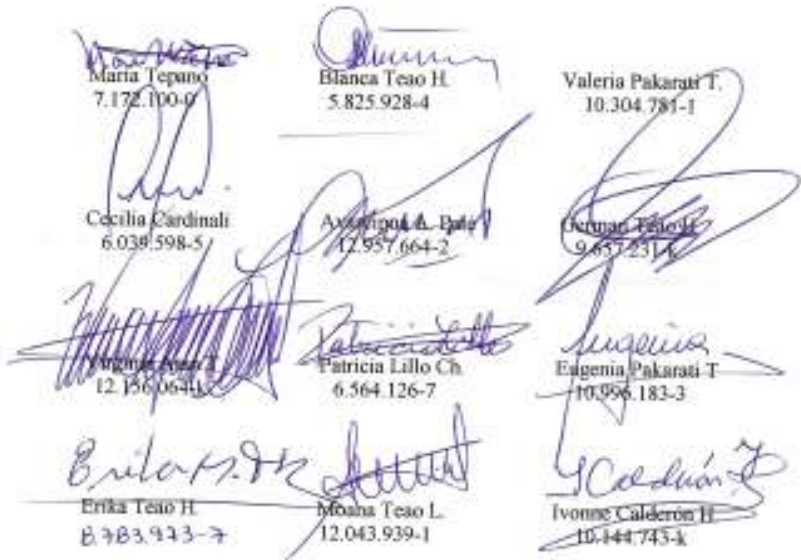 Maria Tepano
7.172.100-0
Blanca Teao H.
5.825.928-4
Valeria Pakarati T.
10.304.781-1
Cecilia Cardinali
6.039.598-5
A. Pate
12.957.664-2
German Teao H
9.657.231-k
Virginia
12.156.064-k
Patricia Lillo
Patricia Lillo Ch.
6.564.126-7
Eugenia
Eugenia Pakarati T
10.996.183-3
Erika
Erika Teao H.
8.783.973-7
Moana Teao L.
12.043.939-1
Calderón
Ivonne Calderón H
10.144.743-k